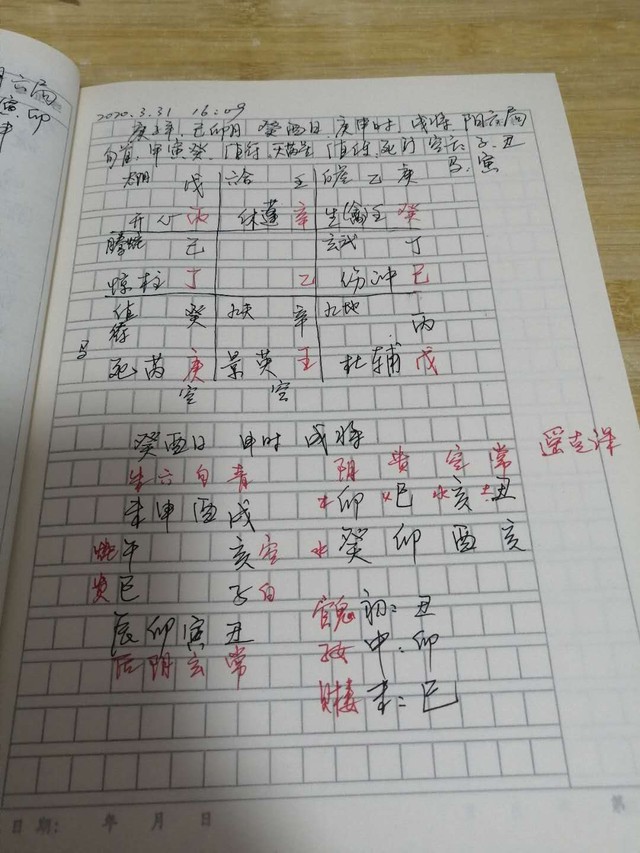 2020.3.31 16:09
庚子年 己卯月 癸酉日 庚申时 戌将 阳六局
旬首:甲寅癸 值符:天芮星 值使:死门 空亡:子、丑
马:寅
太阴 戊 六合 壬 白虎 乙 庚
开 心 丙 休 蓬 辛 生(禽)任 癸
腾蛇 己 玄武 丁
惊 柱 丁 乙 伤 冲 己
值符 癸 九天 辛 九地 丙
马
死 芮 庚 景 英 壬 杜 辅 戊
空 空
癸酉日 申时 戌将
六 白 青 阴 贵 空 常 遥克
未 申 酉 戌 水卯 火巳 水亥 土丑
蛇 午 亥 空 水癸 卯 酉 亥
贵 巳 子 白
辰 卯 寅 丑 官鬼 初:丑
后 阴 玄 常 中:卯
末:巳
日期: 年 月 日
第